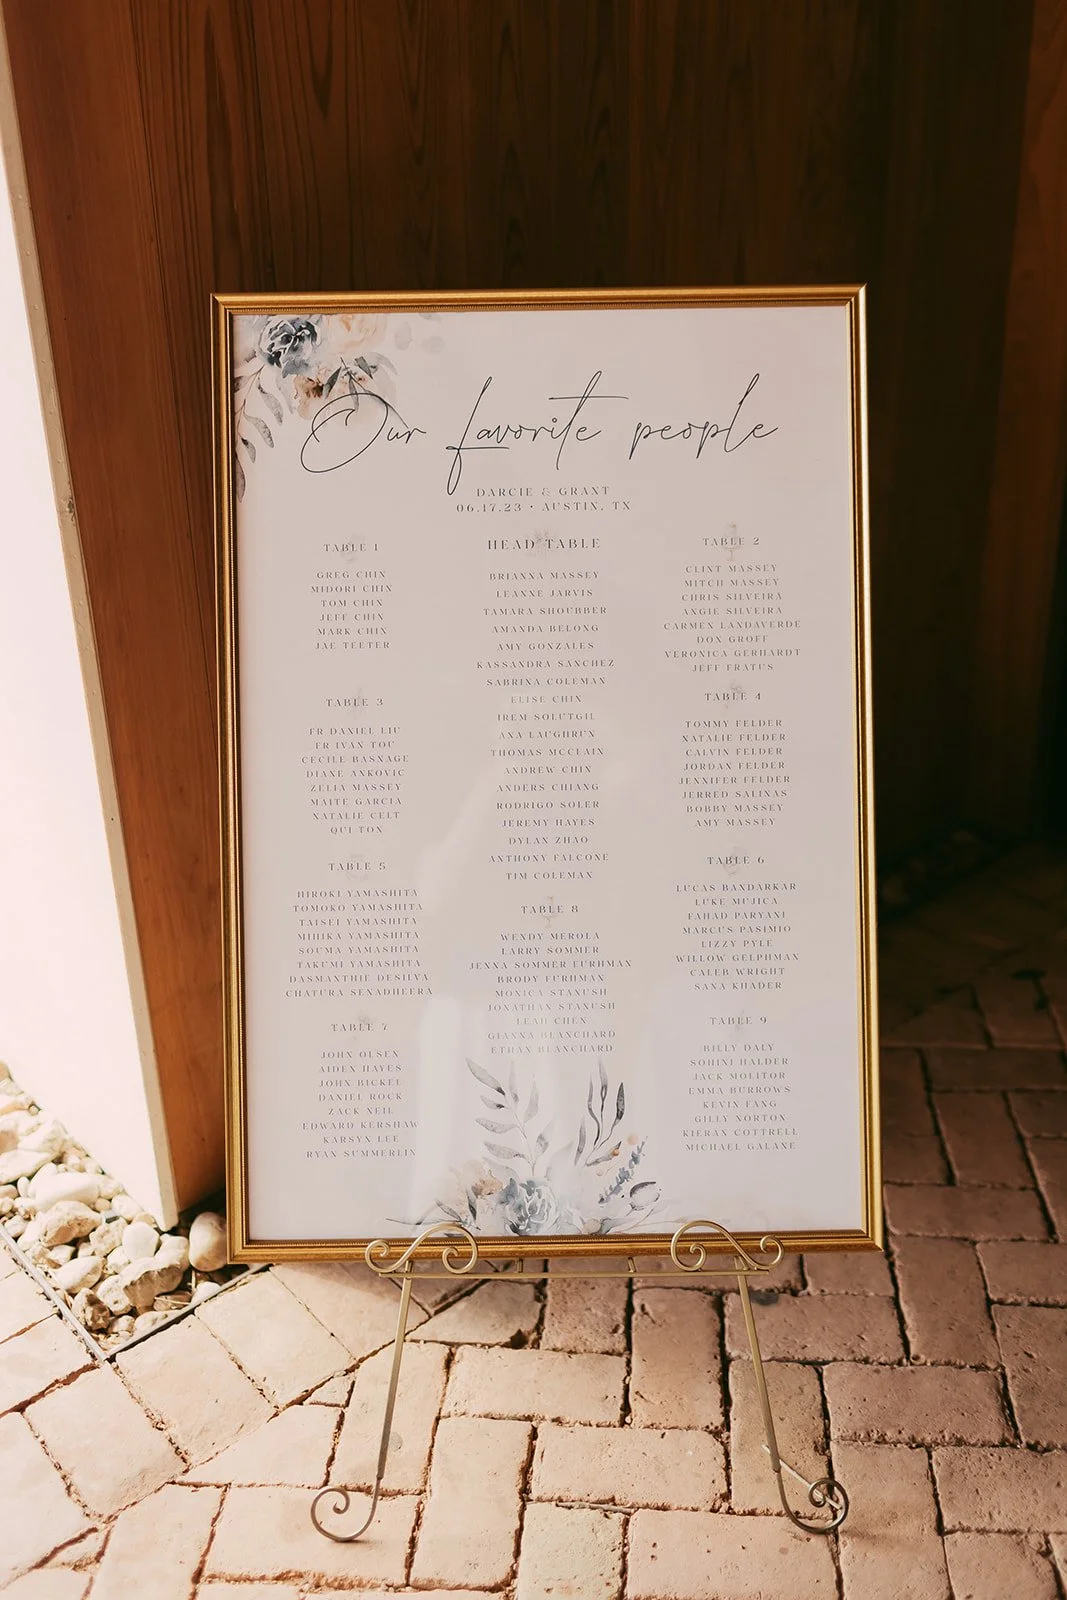 Our favorite people
DARCIE & GRANT
06.17.23 • AUSTIN, TX
TABLE 1
GREG CHIN
MIDORI CHIN
TOM CHIN
JEFF CHIN
MARK CHIN
JAE TEETER
HEAD TABLE
BRIANNA MASSEY
LEANNE JARVIS
TAMARA SHOUBBER
AMANDA BELONG
AMY GONZALES
KASSANDRA SANCHEZ
SABRINA COLEMAN
ELISE CHIN
IREM SOLUTGIL
ANA LAUGHRUN
THOMAS MCCLAIN
ANDREW CHIN
ANDERS CHIANG
RODRIGO SOLER
JEREMY HAYES
DYLAN ZHAO
ANTHONY FALCONE
TIM COLEMAN
TABLE 2
CLINT MASSEY
MITCH MASSEY
CHRIS SILVEIRA
ANGIE SILVEIRA
CARMEN LANDAVERDE
DON GROFF
VERONICA GERHARDT
JEFF FRATUS
TABLE 3
FR DANIEL LIU
FR IVAN TOU
CECILE BASNAGE
DIANE ANKOVIC
ZELIA MASSEY
MAITE GARCIA
NATALIE CELT
QUI TON
TABLE 4
TOMMY FELDER
NATALIE FELDER
CALVIN FELDER
JORDAN FELDER
JENNIFER FELDER
JERRED SALINAS
BOBBY MASSEY
AMY MASSEY
TABLE 5
HIROKI YAMASHITA
TOMOKO YAMASHITA
TAISEI YAMASHITA
MIHIKA YAMASHITA
SOUMA YAMASHITA
TAKUMI YAMASHITA
DASMANTHIE DESILVA
CHATURA SENADHEERA
TABLE 8
WENDY MEROLA
LARRY SOMMER
JENNA SOMMER FURHMAN
BRODY FURHMAN
MONICA STANUSH
JONATHAN STANUSH
LEAH CHEN
GIANNA BLANCHARD
ETHAN BLANCHARD
TABLE 6
LUCAS BANDARKAR
LUKE MUJICA
FAHAD PARYANI
MARCUS PASIMIO
LIZZY PYLE
WILLOW GELPHMAN
CALEB WRIGHT
SANA KHADER
TABLE 7
JOHN OLSEN
AIDEN HAYES
JOHN BICKEL
DANIEL ROCK
ZACK NEIL
EDWARD KERSHAW
KARSYN LEE
RYAN SUMMERLIN
TABLE 9
BILLY DALY
SOHINI HALDER
JACK MOLITOR
EMMA BURROWS
KEVIN FANG
GILLY NORTON
KIERAN COTTRELL
MICHAEL GALANE